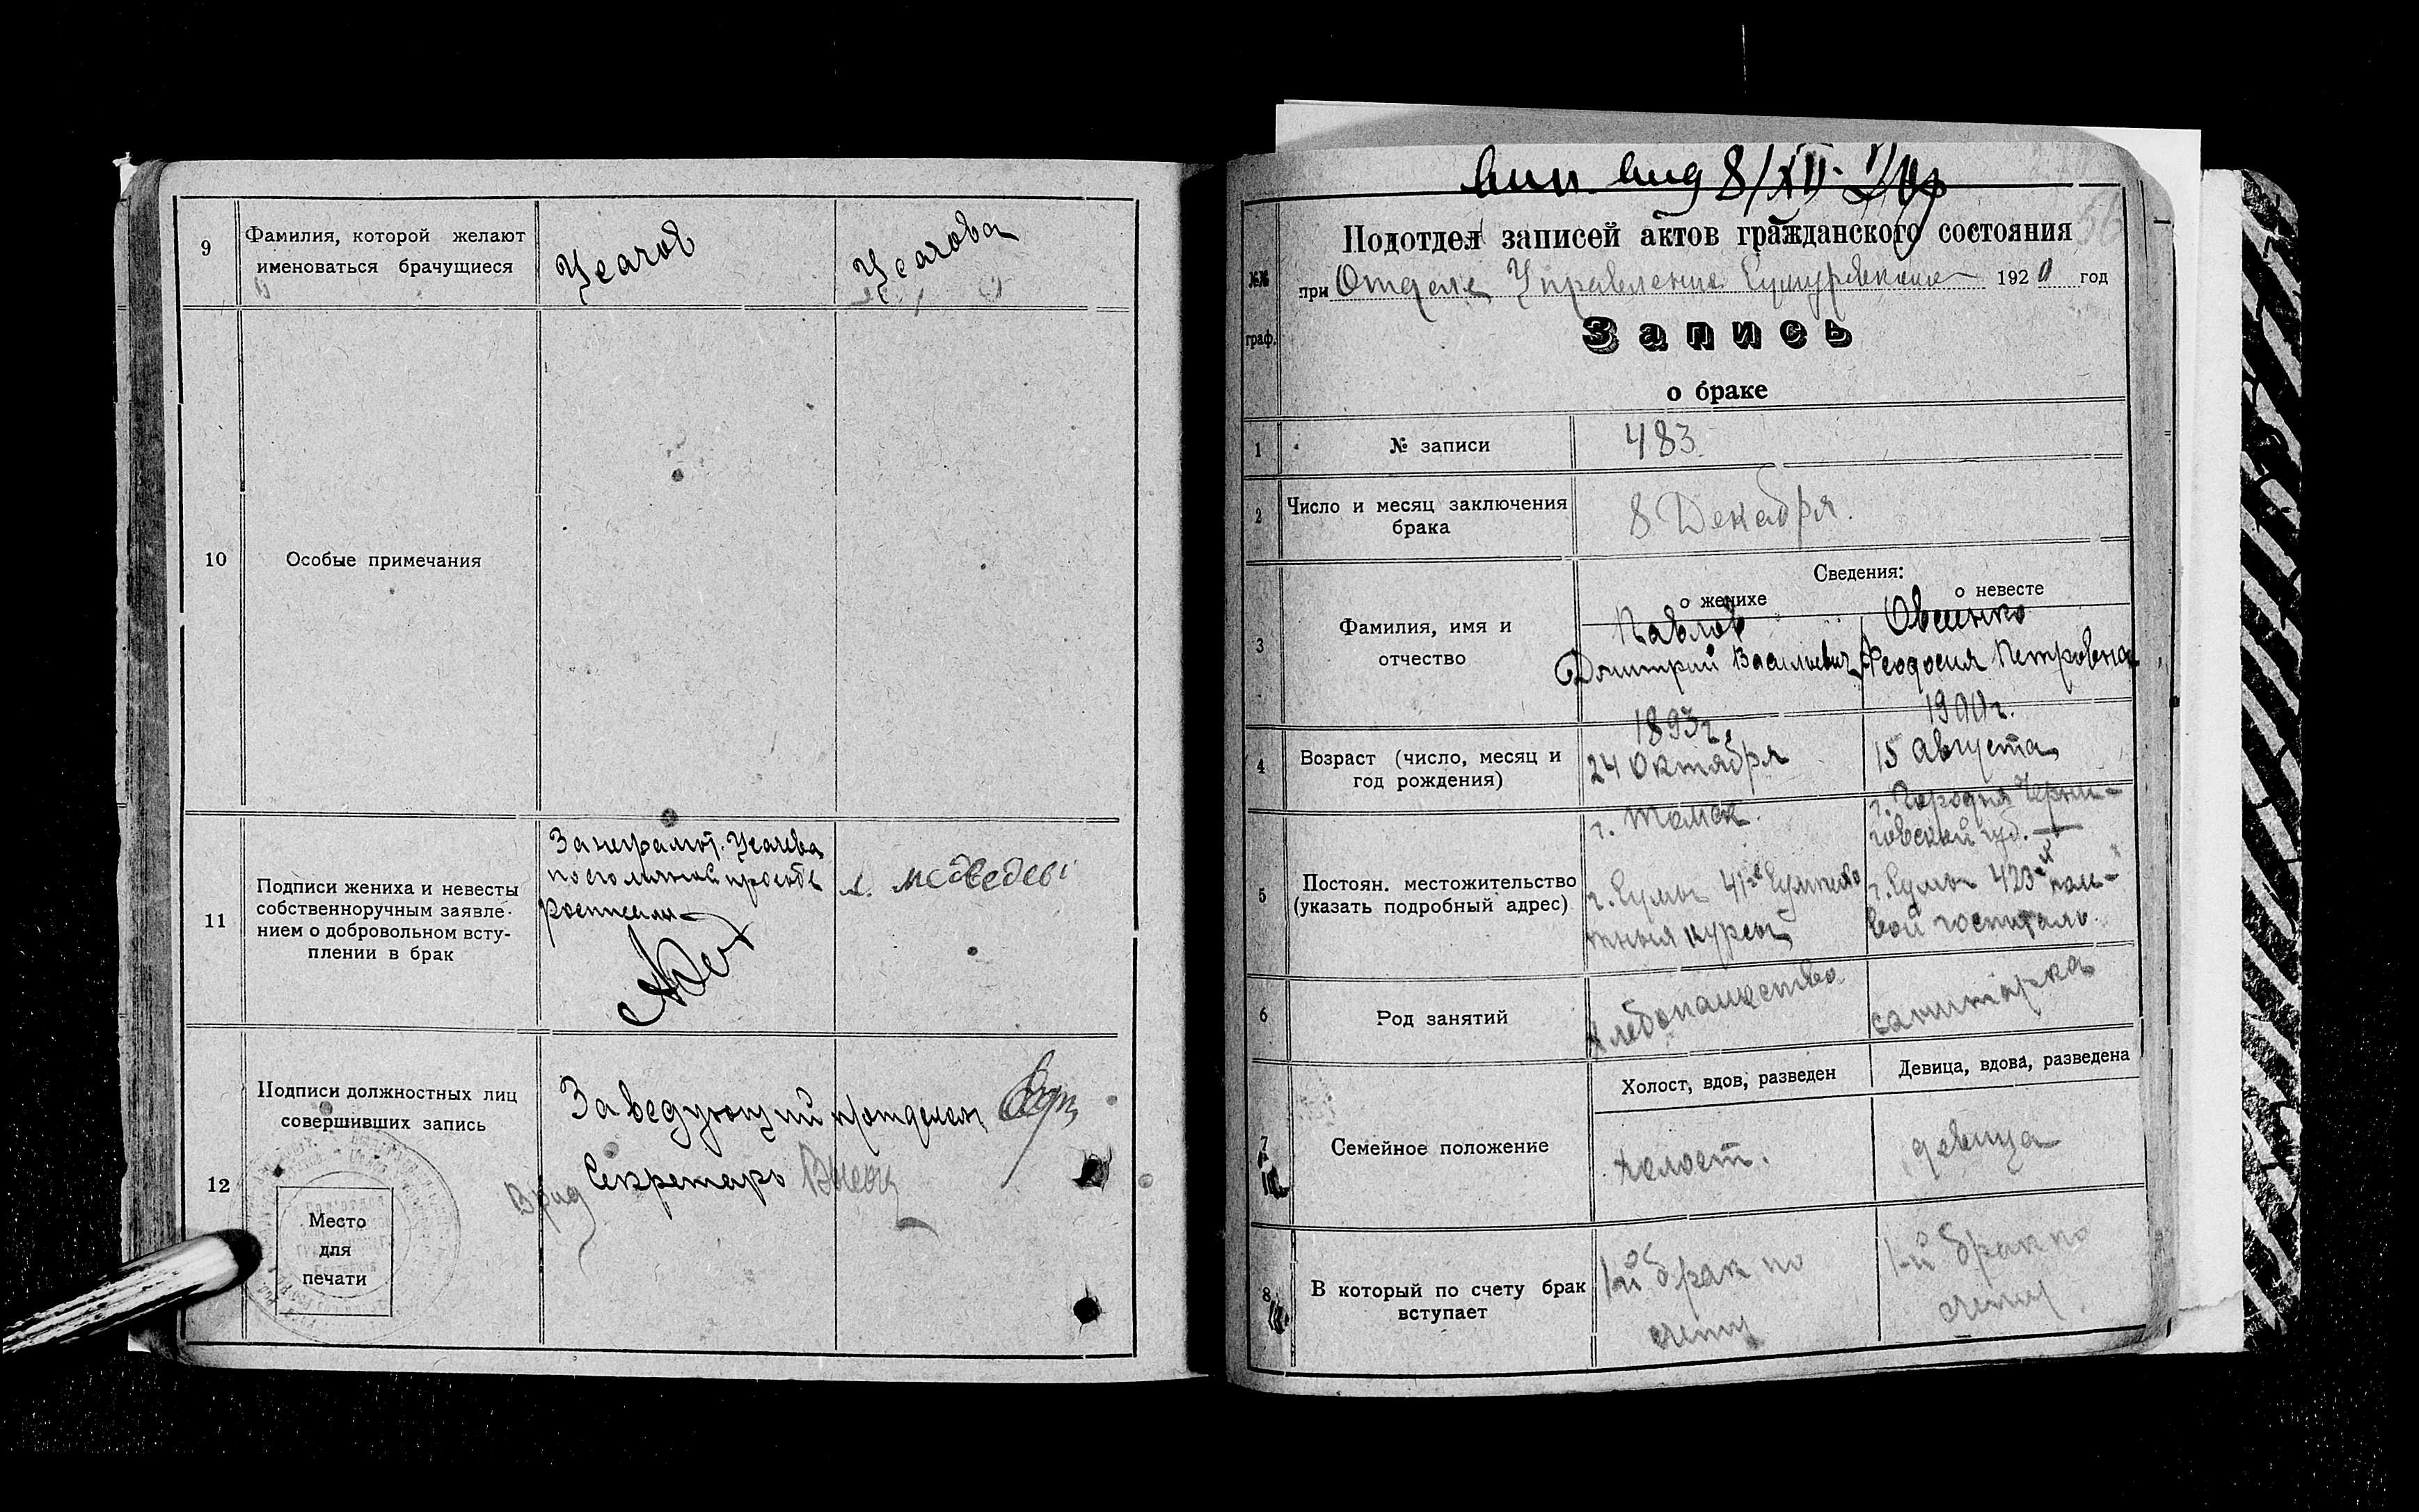 9
Фамилия, которой желают
именоваться брачущиеся
Усачов
Усачова
10
Особые примечания
11
Подписи жениха и невесты
собственноручным заявле-
нием о добровольном всту-
плении в брак
За неграмот. Усачева
по его личной просьбе
росписался
медведева
12
Подписи должностных лиц
совершивших запись
Место
для
печати
Заведующий п/отделом
Врид Секретарь
вид 8/XII
56
№№
граф.
Подотдел записей актов гражданского состояния
при Отделе Управления Сумуревкома 1920 год
Запись
о браке
1
№ записи
483
2
Число и месяц заключения
брака
8 Декабря.
Сведения:
о женихе
о невесте
3
Фамилия, имя и
отчество
Павлов
Дмитрий Васильевич
Овсиенко
Феодосия Петровна
4
Возраст (число, месяц и
год рождения)
1893 г.
24 Октября
1900 г.
15 августа
5
Постоян. местожительство
(указать подробный адрес)
г. Томск.
г. Сумы 41-е
курсы
г. Городня Черни-
говской губ.
г. Сумы 423-й поле-
вой госпиталь.
6
Род занятий
Хлебопашество
санитарка
7
Семейное положение
Холост, вдов, разведен
Девица, вдова, разведена
холост.
девица
8
В который по счету брак
вступает
1-й брак по
счету
1-й брак по
счету